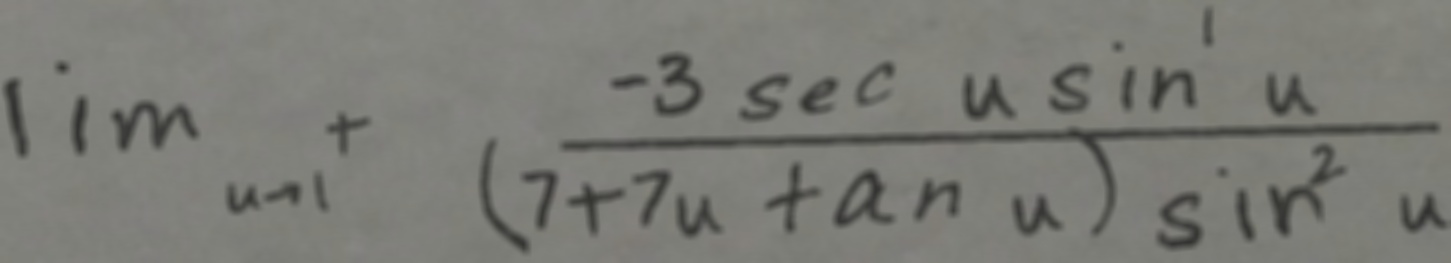 \lim_{u \to 1^+} \frac{-3 \sec u \sin^1 u}{(7+7u \tan u) \sin^2 u}